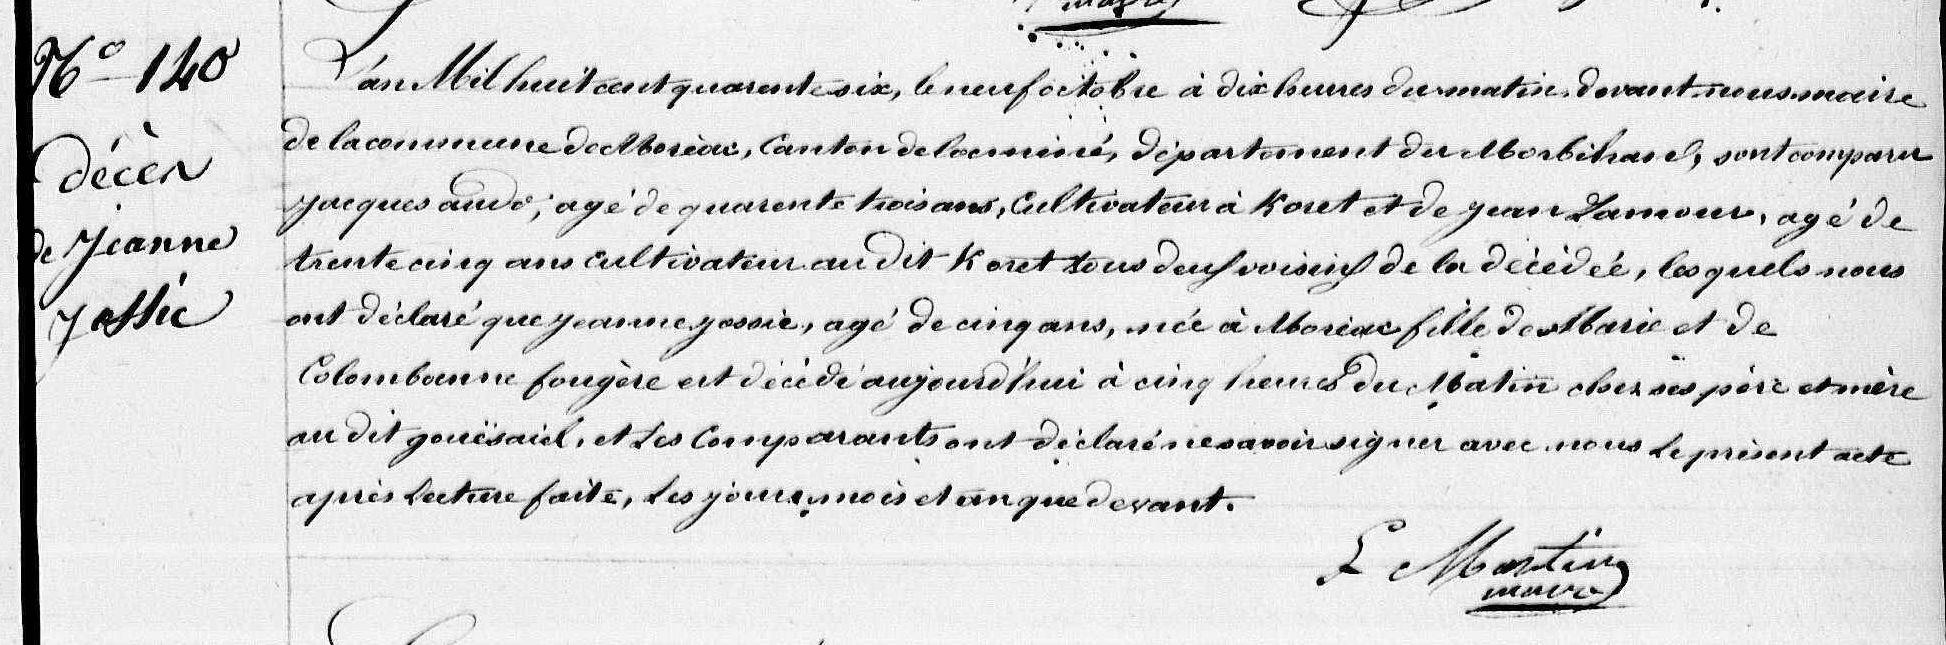 N° 140
décès
de Jeanne
Jossic
L'an Mil huit cent quarente six, le neuf octobre à dix heures du matin, devant nous maire
de la commune de Moréac, Canton de locminé, département du Morbihan, sont comparu
Jacques audo, agé de quarente trois ans, Cultivateur à Koret et de jean Lamour, agé de
trente cinq ans cultivateur au dit Koret tous deux voisins de la décédée, les quels nous
ont déclaré que jeanne jossic, agé de cinq ans, née à Moréac fille de Marie et de
Colombanne fougère est décédé aujourd'hui à cinq heures du Matin chez ses père et mère
au dit et Les Comparants ont déclaré ne savoir signer avec nous Le présent acte
après Lecture faite, Les jour, mois et an que devant.
L Martin
maire